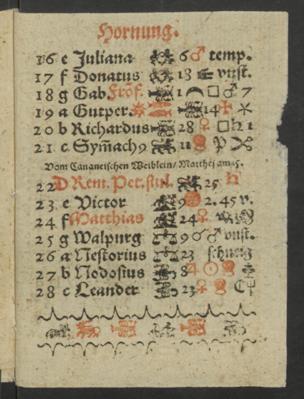 Hornung.
16 e Juliana 6 ♂ temp.
17 f Donatus 18 vnst.
18 g Gab. Fröf. 1 ☽ □ ♂ 7
19 a Gutper. 14 ✶
20 b Richardus 28 ♀ □ ♄ 1
21 c Sym̃ach 9 11 ♀
Vom Cananeischen Weiblein / Matthei am 15.
22 D Rem. Pet. stul. 25 ♄
23 e Victor 9 2. 45 v.
24 f Matthias 24 ♀
25 g Walpurg 9 ☌ ♂ vnst.
26 a Nestorius 23
27 b Nodosius 8 ☉
28 c Leander 23 ♀ ☾